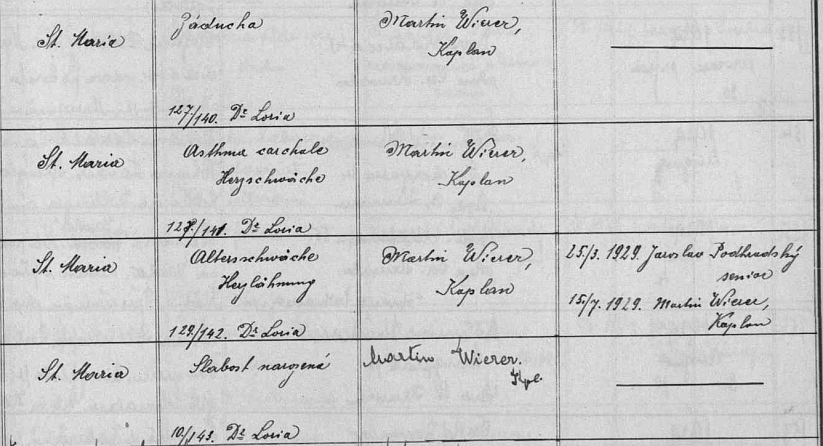 St. Maria
Záducha
127/140. Dr Loria
Martin Wierer,
Kaplan
St. Maria
Asthma carchale
Herzschwäche
128/141. Dr Loria
Martin Wierer,
Kaplan
St. Maria
Altersschwäche
Herzlähmung
129/142. Dr Loria
Martin Wierer,
Kaplan
25/3. 1929. Jaroslav Podhradský
senior
15/7. 1929. Martin Wierer,
Kaplan
St. Maria
Slabost narozená
10/143. Dr Loria
Martin Wierer.
Kpl.